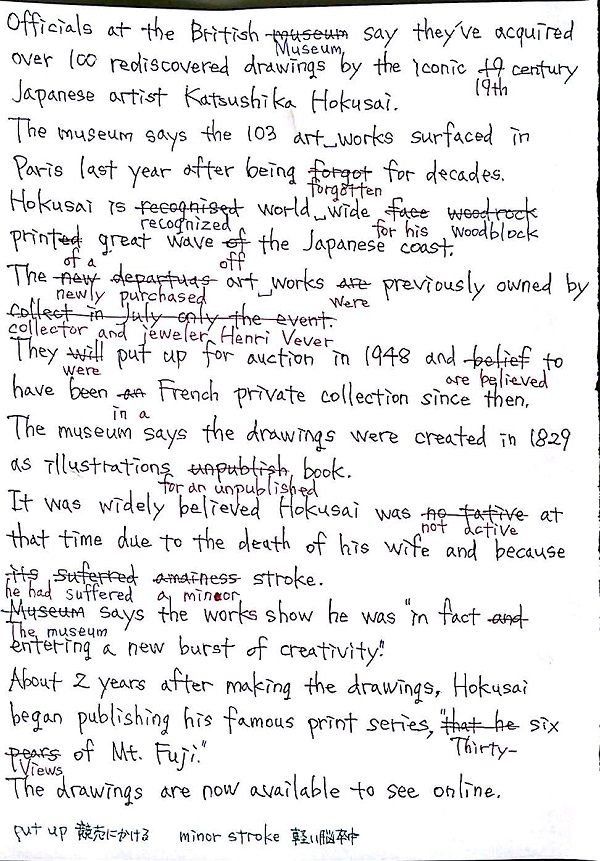 Officials at the British museum say they've acquired
Museum
over 100 rediscovered drawings by the iconic 19 century
19th
Japanese artist Katsushika Hokusai.
The museum says the 103 art works surfaced in
Paris last year after being forgot for decades.
forgotten
Hokusai is recognised world wide face woodrock
recognized for his woodblock
printed great wave of the Japanese coast.
of a off
The new departuas art works are previously owned by
newly purchased were
collect in July only the event.
collector and jeweler, Henri Vever
They will put up for auction in 1948 and belief to
were are believed
have been an French private collection since then.
in a
The museum says the drawings were created in 1829
as illustrations unpublish book.
for an unpublished
It was widely believed Hokusai was no tative at
not active
that time due to the death of his wife and because
its suferred amainess stroke.
he had suffered a minor
Museum says the works show he was "in fact and
The museum
entering a new burst of creativity."
About 2 years after making the drawings, Hokusai
began publishing his famous print series, "that he six
Thirty-
pears of Mt. Fuji."
Views
The drawings are now available to see online.
put up 競売にかける minor stroke 軽い脳卒中